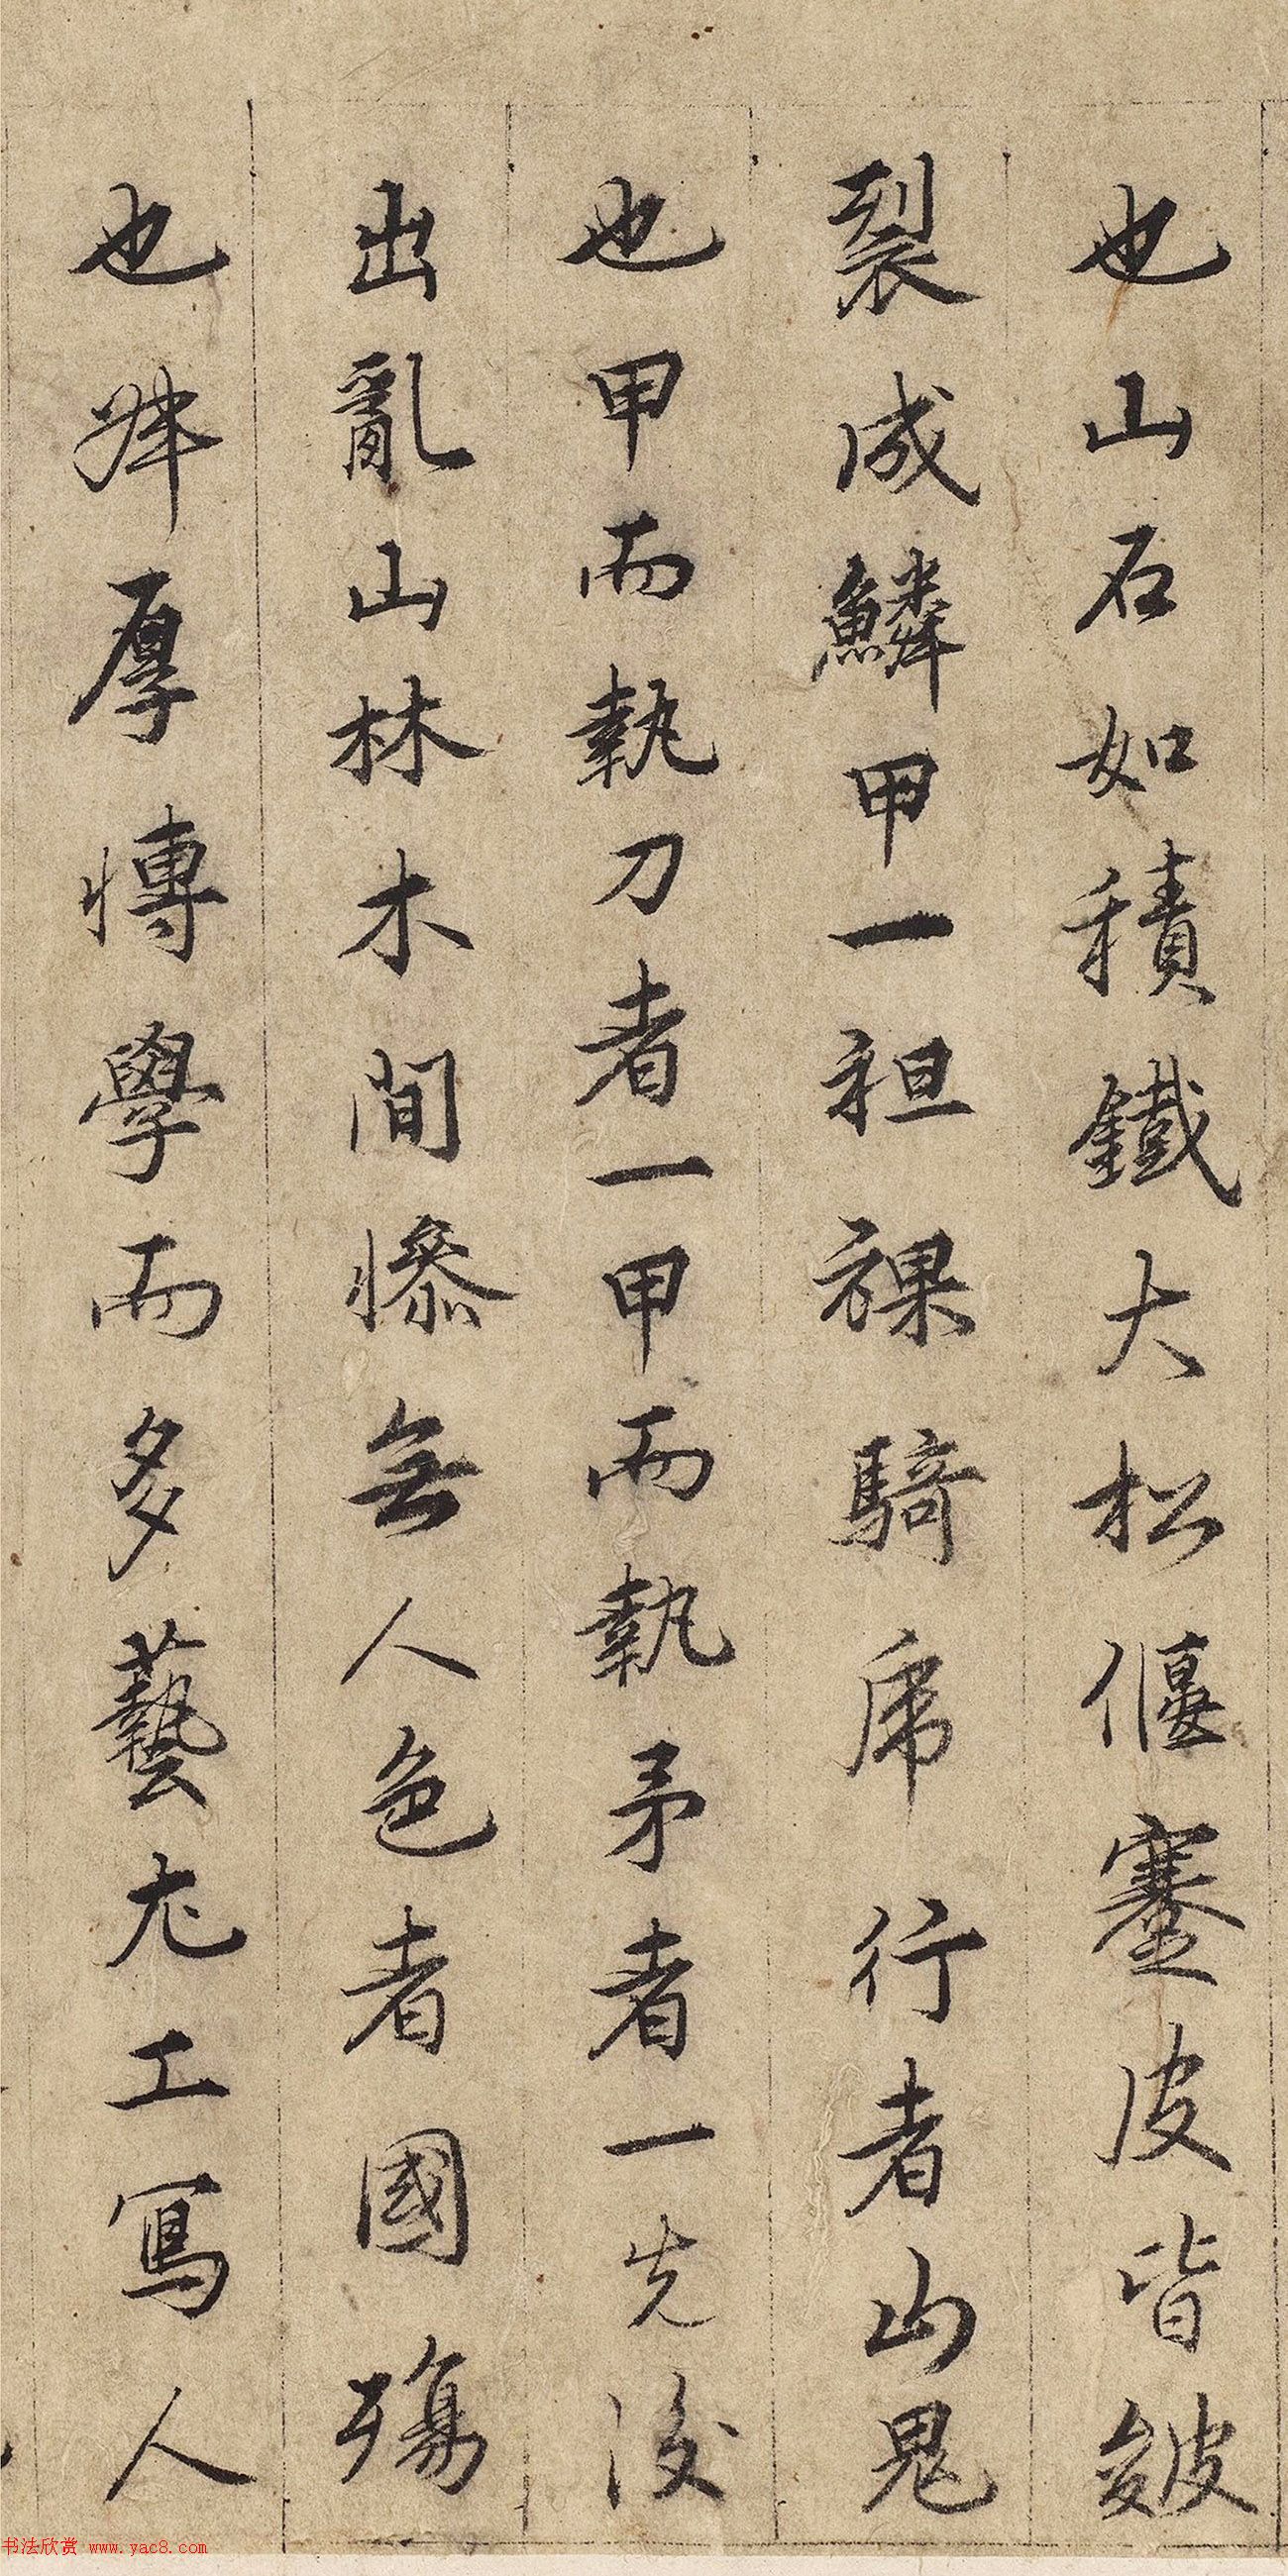 也山石如積鐵大松偃蹇皮皆皴
裂成鱗甲一袒裸騎虎行者山鬼
也甲而執刀者一甲而執矛者一先後
出亂山林木間慘無人色者國殤
也叔厚博學而多藝尤工寫人
书法欣赏 www.yac8.com